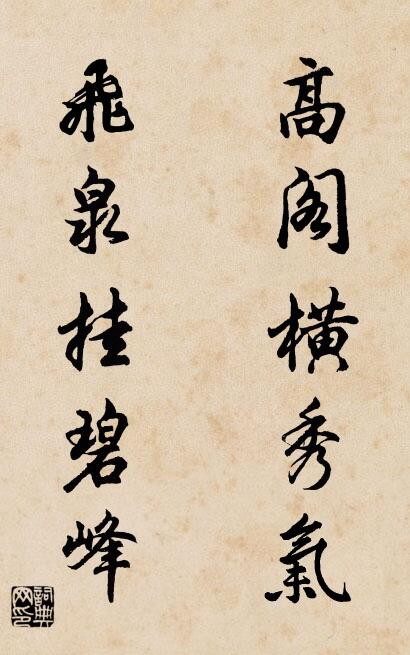 高閣橫秀氣
飛泉挂碧峰
詞典網印